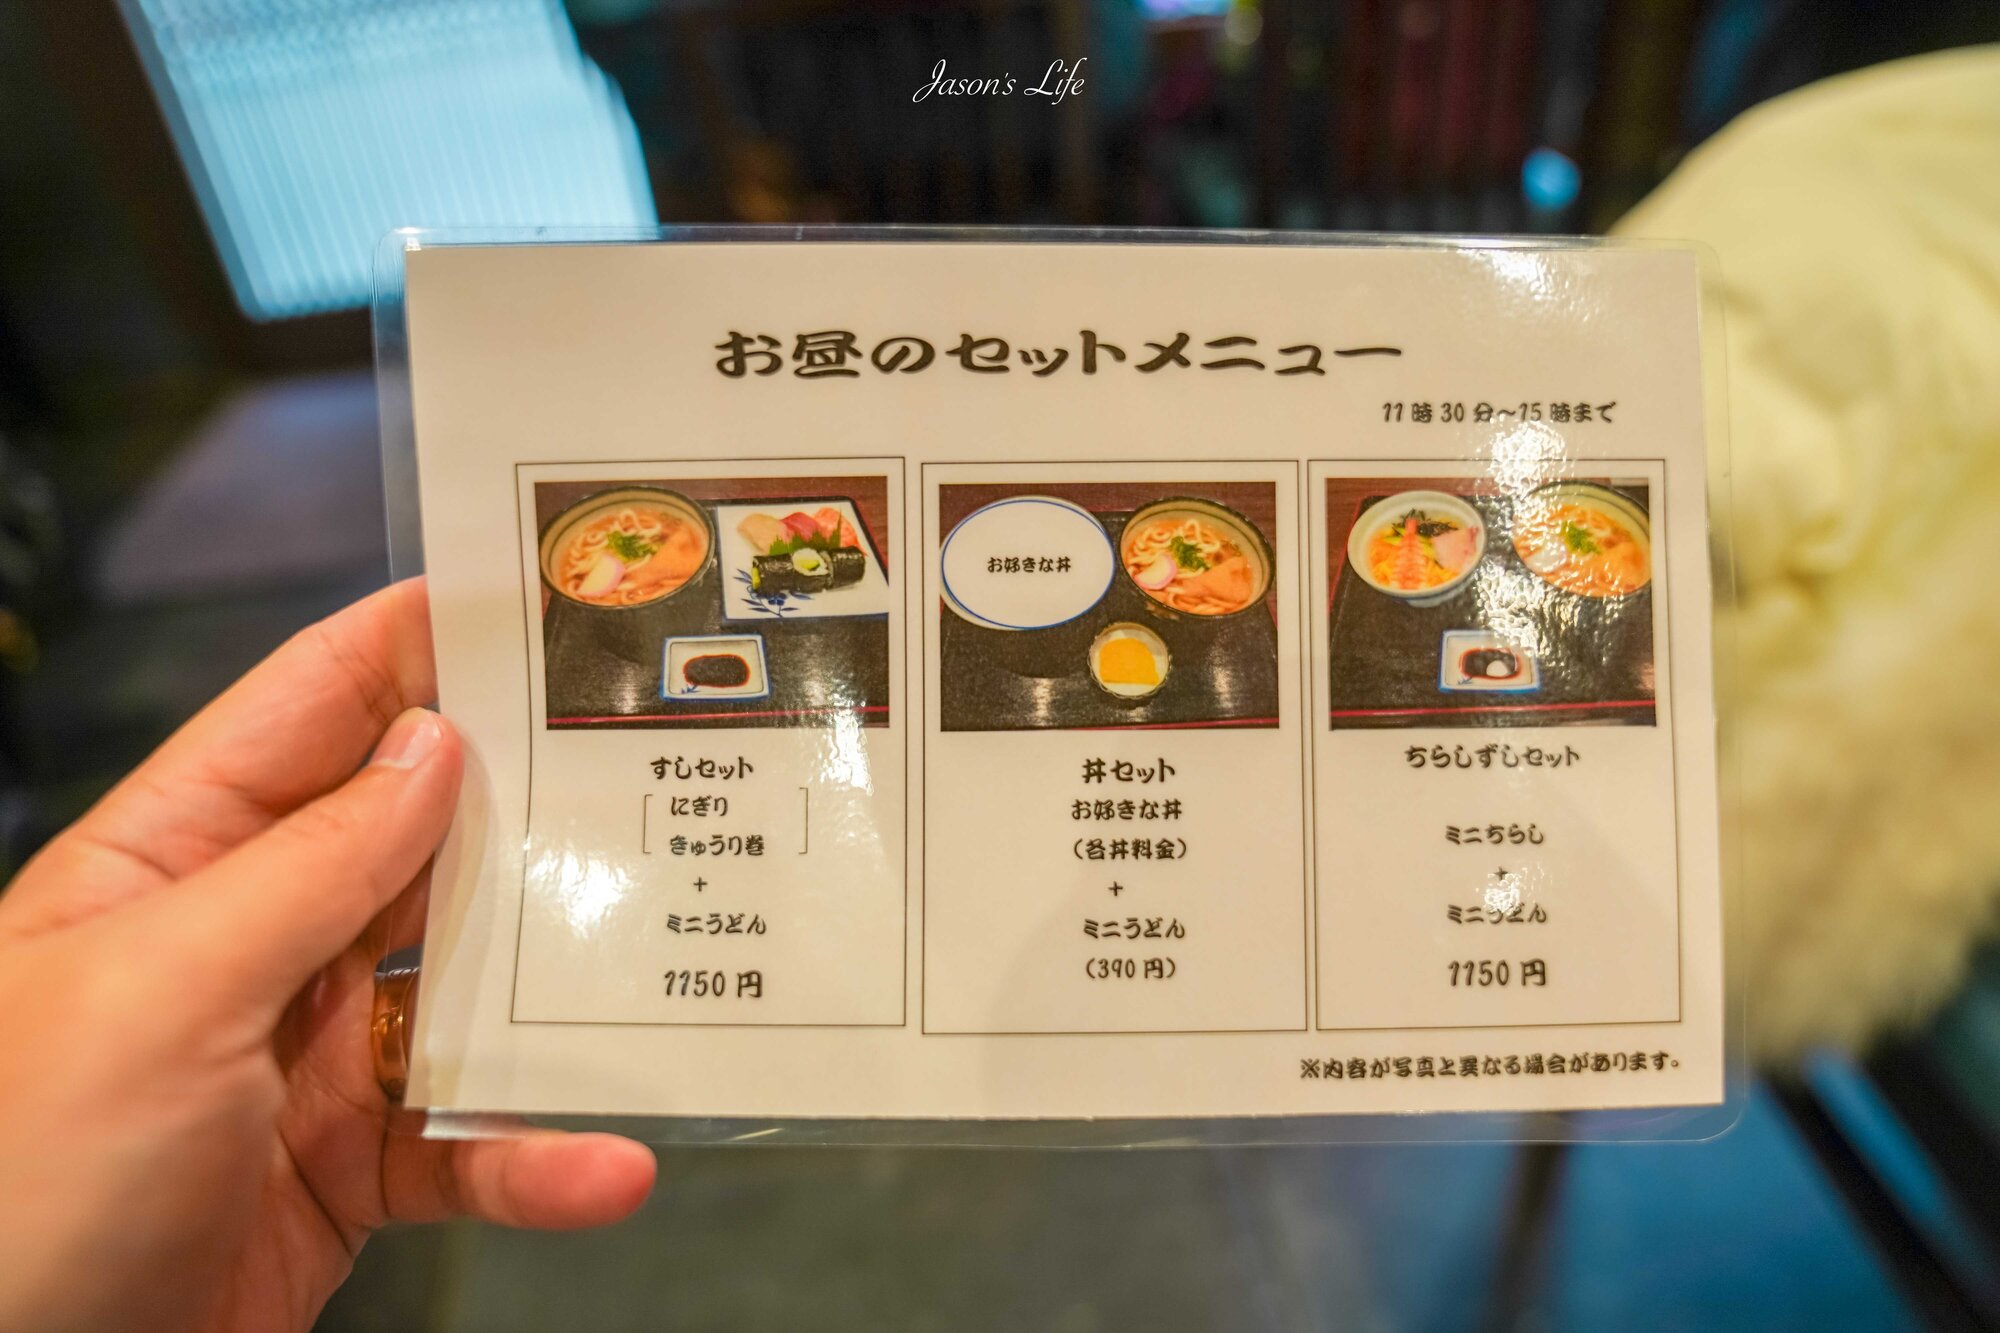 Jason's Life
お昼のセットメニュー
11時30分～15時まで
お好きな丼
すしセット
にぎり
きゅうり巻
+
ミニうどん
1150円
丼セット
お好きな丼
(各丼料金)
+
ミニうどん
(390円)
ちらしずしセット
ミニちらし
+
ミニうどん
1150円
※内容が写真と異なる場合があります。